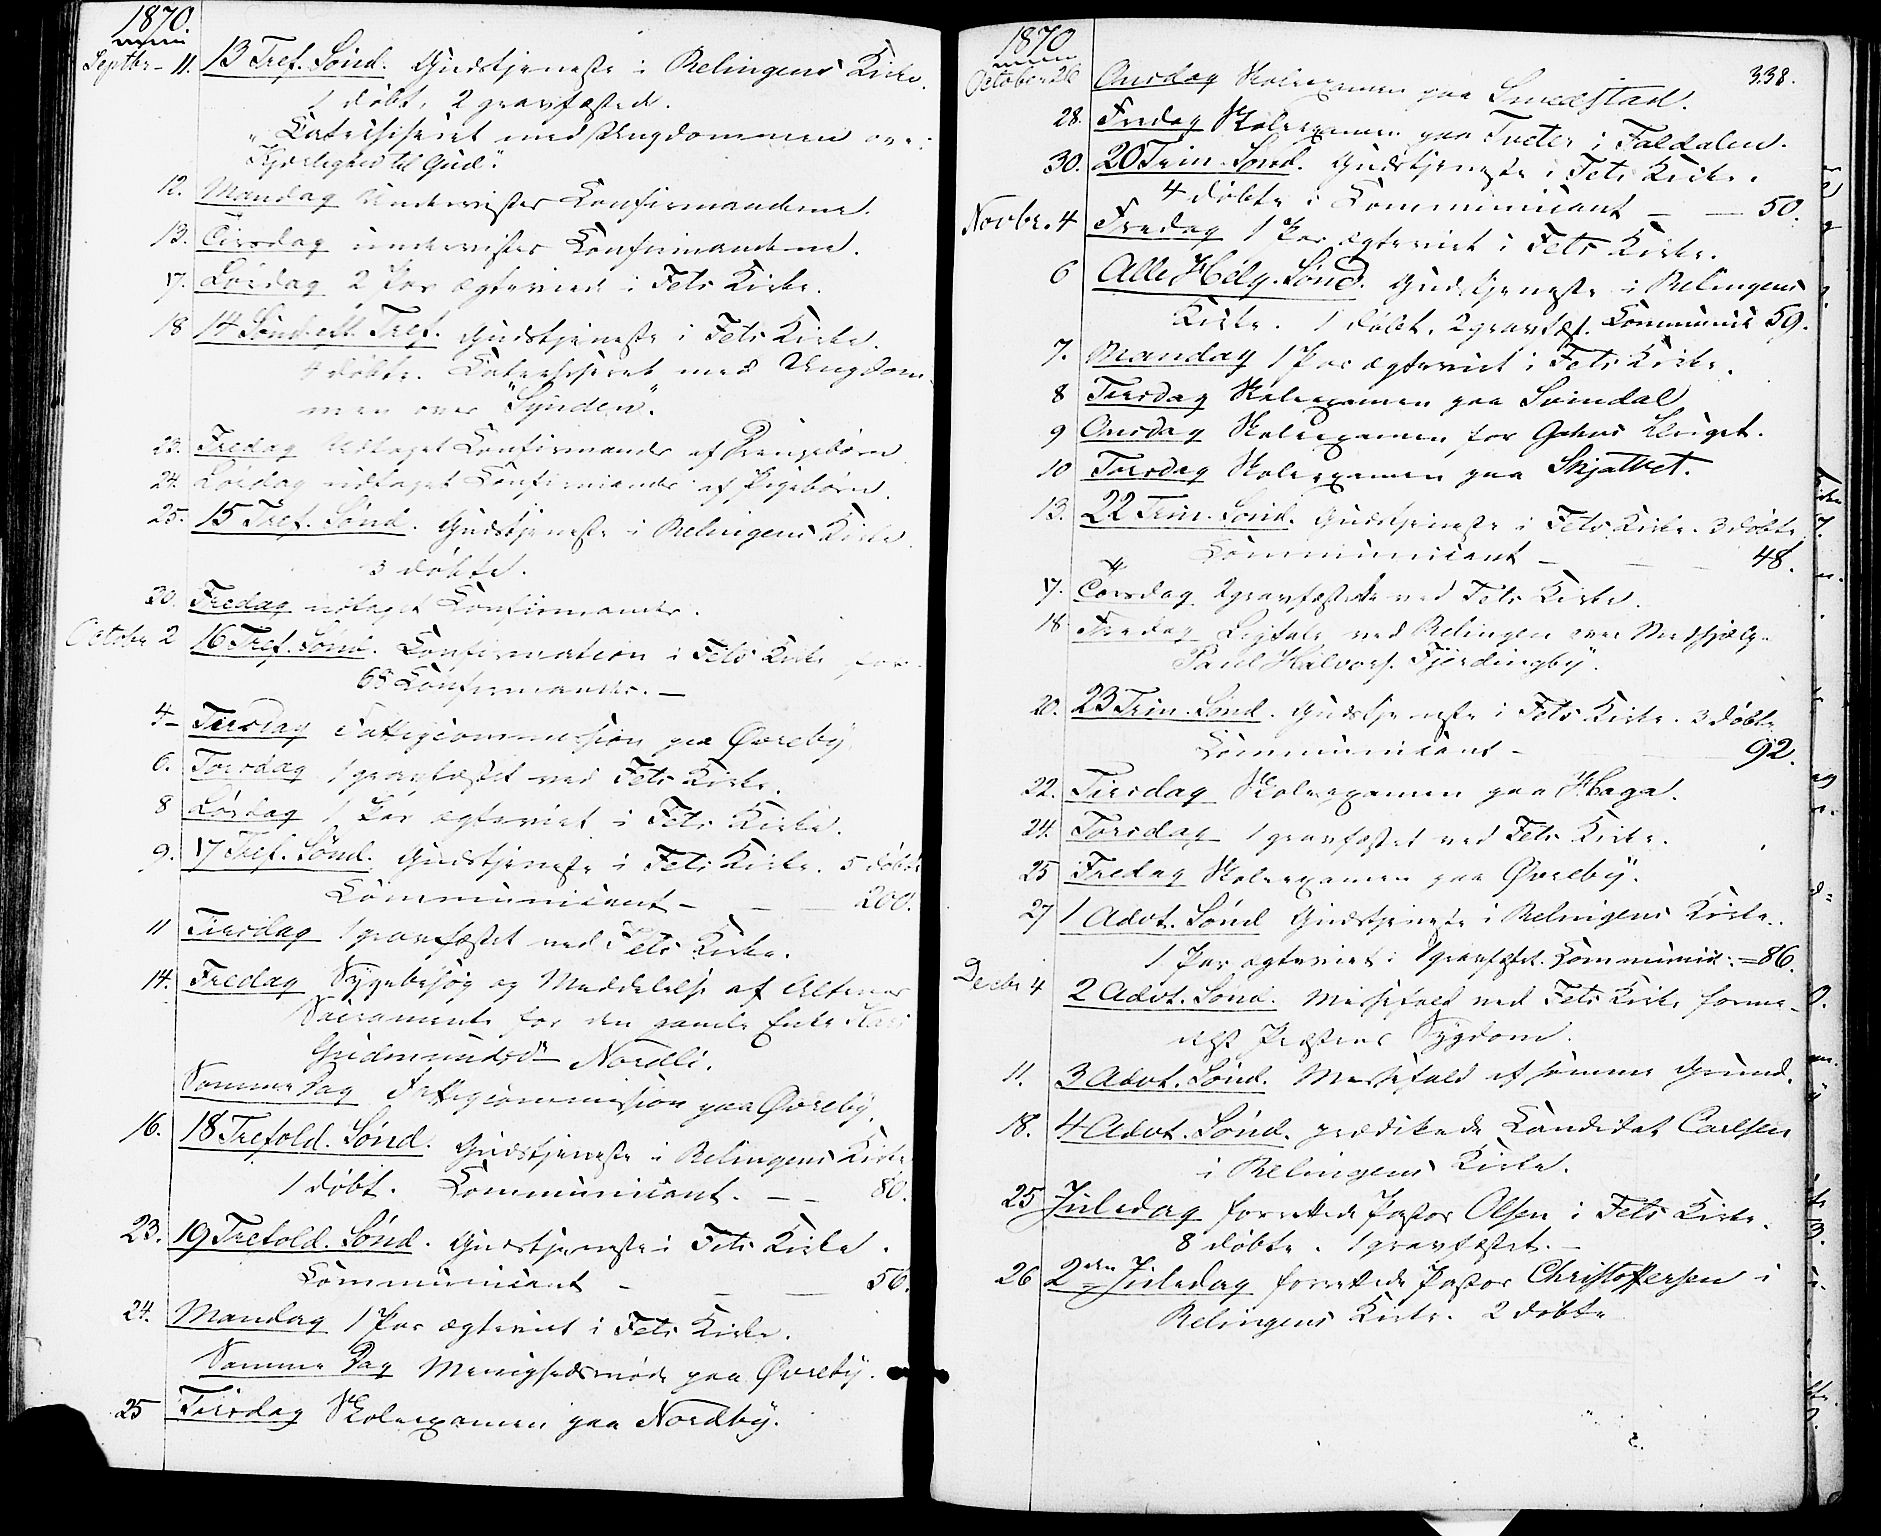 1870.
Septbr - 11. 13 Tref. Sönd. Gudstjeneste i Relingens Kirke.
1 döbt, 2 gravfæstede.
Catechiseret med Ungdommen over:
Kjærlighed til Gud".
12. Mandag undervistes Confirmanderne.
13. Tirsdag undervistes Confirmanderne.
17. Lördag 2 Par ægteviede i Fets Kirke.
18 14 Sönd. eft. Tref. Gudstjeneste i Fets Kirke.
4 döbte. Catechiseret med Ungdom-
men over "Synden".
23. Fredag Udtaget Confirmander af Drengebörn
24. Lördag udtaget Confirmander af Pigebörn.
25. 15 Tref. Sönd. Gudstjeneste i Relingens Kirke.
3 döbte.
30. Fredag udtaget Confirmander.
Octobr 2 16 Tref. Sönd. Confirmation i Fets Kirke for
Confirmander. —
4 - Tirsdag Fattigcommission paa Övreby
6. Torsdag 1 gravfæstet ved Fets Kirke.
8 Lördag 1 Par ægteviet i Fets Kirke.
9. 17 Tref. Sönd. Gudstjeneste i Fets Kirke. 5 döbte
Communicant - — — 200.
11 Tirsdag 1 gravfæstet ved Fets Kirke.
14. Fredag Sygebesög og Meddelelse af Alterens
Sacramente for den gamle Enke Kari
Gudmundsd. Nordli.
Samme Dag Fattigcommission paa Övreby.
16. 18 Trefold. Sönd. Gudstjeneste i Relingens Kirke
1 döbt. Communicant. — — 80.
23. 19 Trefold. Sönd. Gudstjeneste i Fets Kirke.
Communicant - — — 56.
24. Mandag 1 Par ægteviet i Fets Kirke.
Samme Dag Menighedsmöde paa Övreby.
25 Tirsdag Skoleexamen paa Nordby.
1870
338.
October 26 Onsdag Skoleexamen paa Smedstad.
28. Fredag Skoleexamen paa Tveter i Faldalen.
30. 20 Trin. Sönd. Gudstjeneste i Fets Kirke.
4 döbte i Communicant — — 50.
Novbr. 4 Fredag 1 Par ægteviet i Fets Kirke.
6 Alle Helg. Sönd. Gudstjeneste i Relingens
Kirke. 1 döbt, 2 gravfæst. Communic 59.
7. Mandag 1 Par ægteviet i Fets Kirke.
8 Tirsdag Skoleexamen paa Svindal
9 Onsdag Skoleexamen for
10 Torsdag Skoleexamen paa Skjatvet.
13. 22 Trin. Sönd. Gudstjeneste i Fets Kirke. 3 döbte
Communicant — — 48.
17. Torsdag 2 gravfæstede ved Fets Kirke.
18 Fredag Ligtale ved Relingen over Medhjælp.
Paul Halvors. Fjerdingby.
20. 23 Trin. Sönd. Gudstjeneste i Fets Kirke. 3 döbte
Communicant - 92.
22. Tirsdag Skoleexamen paa Haga.
24. Torsdag 1 gravfæstet ved Fets Kirke.
25 Fredag Skoleexamen paa Övreby.
27 1 Advt. Sönd Gudstjeneste i Relingens Kirke.
1 Par ægteviet. 1 gravfæstet. Communic: = 86.
Decbr 4 2 Advt. Sönd. Messefald ved Fets Kirke forme-
delst Præstens Sygdom.
11. 3 Advt. Sönd. Messefald af samme Grund.
18. 4 Advt. Sönd. prædikede Candidat Carlsen
i Relingens Kirke.
25 Juledag forrettede Pastor Olsen i Fets Kirke.
8 döbte. 1 gravfæstet. —
26 2den Juledag forrettede Pastor Christoffersen i
Relingens Kirke. 2 döbte